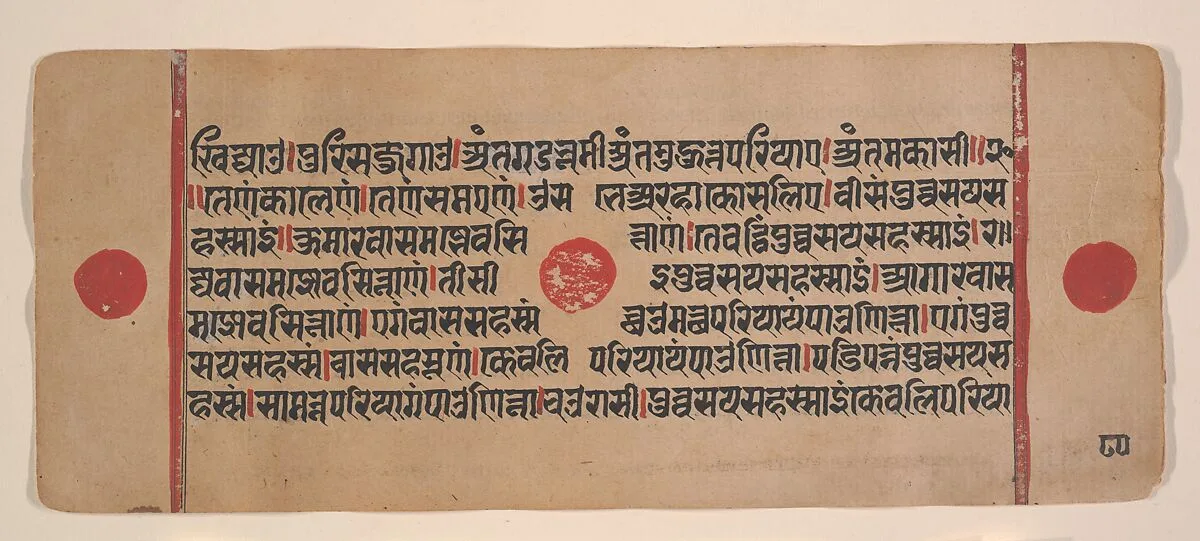 खिज्जाउ।पुरिसजुगाउ।अंतगडभूमी अंतमुहुत्तपरियाए।अंतमकासी॥२०
॥तेणं कालेणं।तेणं समएणं।उसभे अरहा कोसलिए।वीसं पुव्वसयस
हस्साइं॥कुमारवासमज्झेवसित्ताणं।तेवट्ठिं पुव्वसयसहस्साइं।र॥
ज्जवासमज्झेवसित्ताणं।तेसीइं पुव्वसयसहस्साइं।आगारवास
मज्झेवसित्ताणं।एगं वाससहस्सं छउमत्थपरियायं पाउणित्ता।एगं पुव्व
सयसहस्सं।वाससहस्सूणं।केवलिपरियायं पाउणित्ता।पडिपुन्नं पुव्वसयस
हस्सं।सामन्नपरियागं पाउणित्ता।चउरासी।पुव्वसयसहस्साइं केवलिपरिया